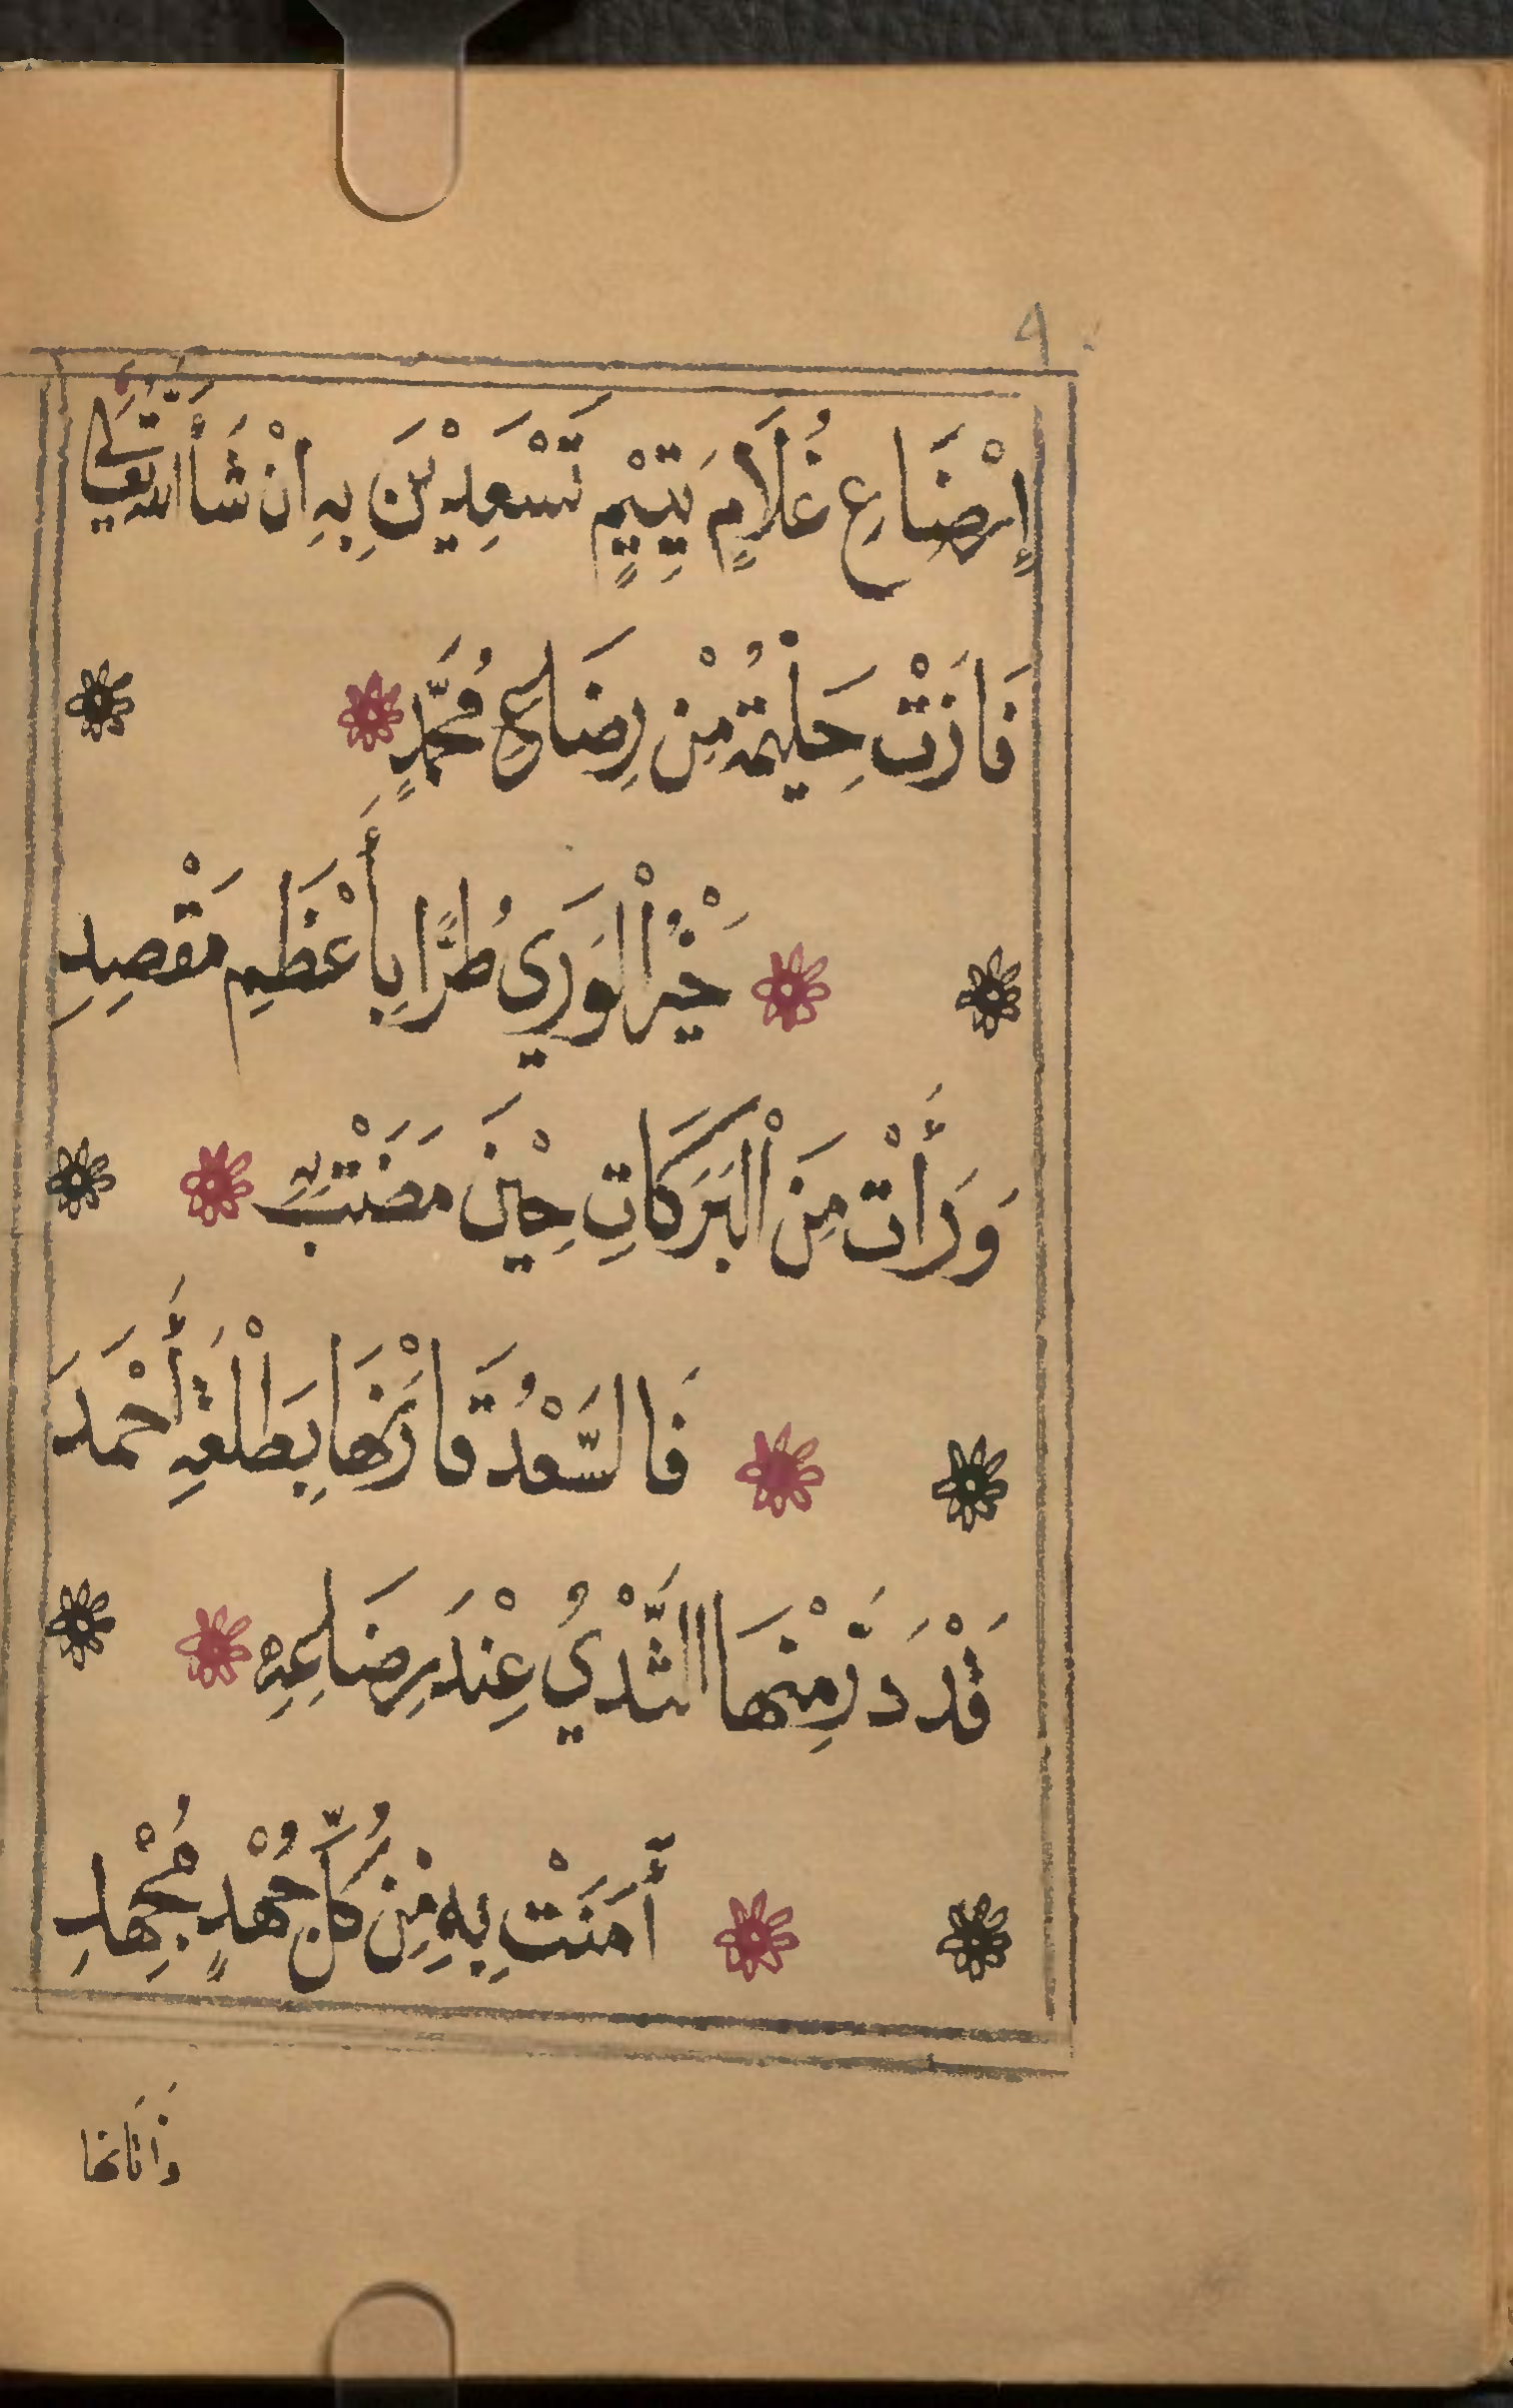 ٩
إِرْضَاعِ غُلَامٍ يَتِيْمٍ تَسْعَدِيْنَ بِهِ اِنْ شَاْ اَللّٰهُ تَعَالَى
فَازَتْ حَلِيْمَةُ مِنْ رِضَاعِ مُحَمَّدٍ
خَيْرُ الْوَرَي طُرًّا بِأَعْظَمِ مَقْصِدِ
وَرَأَتْ مِنَ الْبَرَكَاتِ حِيْنَ مَضَتْ بِهِ
فَالسَّعْدُ قَارَنَهَا بِطَلْعَةِ أَحْمَدَ
قَدْ دَرَّ مِنْهَا الثَّدْيُ عِنْدَ رِضَاعِهِ
أَمَنَتْ بِهِ مِنْ كُلِّ جُهْدٍ مُجْهِدِ
وَاَتَاهَا